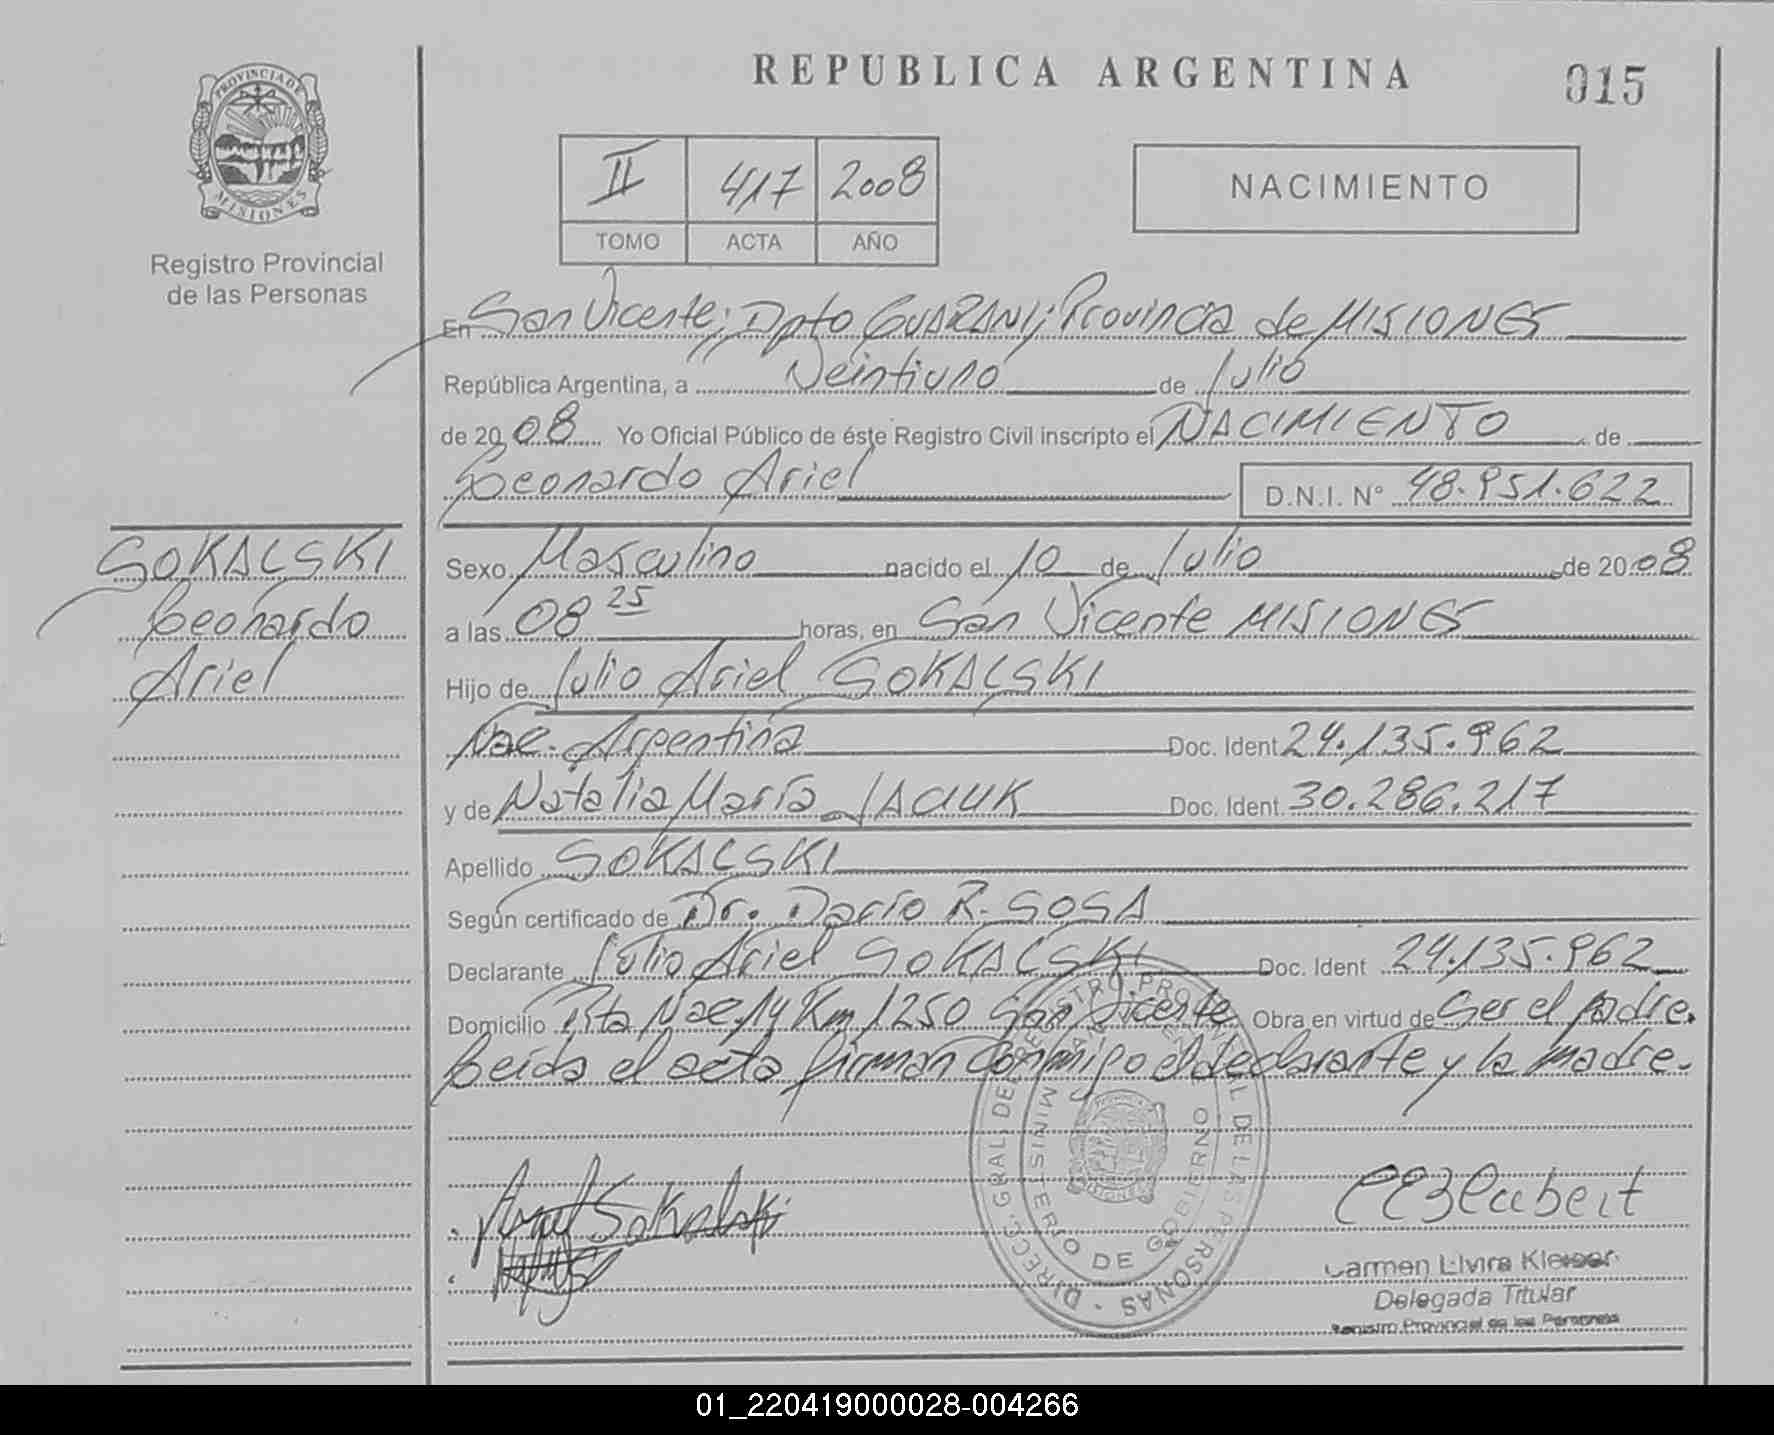 REPUBLICA ARGENTINA
015
PROVINCIA DE
MISIONES
Registro Provincial
de las Personas
II 417 2008
TOMO ACTA AÑO
NACIMIENTO
En San Vicente; Dpto GUARANI; Provincia de MISIONES
República Argentina, a Veintiuno de Julio
de 2008 Yo Oficial Público de éste Registro Civil inscripto el NACIMIENTO de
Leonardo Ariel D.N.I. N° 48.951.622
SOKALSKI
Leonardo
Ariel
Sexo Masculino nacido el 10 de Julio de 2008
a las 08 25 horas, en San Vicente MISIONES
Hijo de Julio Ariel SOKALSKI
Nac. Argentina Doc. Ident 24.135.962
y de Natalia María Doc. Ident. 30.286.217
Apellido SOKALSKI
Según certificado de Dr. Darío R. SOSA
Declarante Julio Ariel SOKALSKI Doc. Ident 24.135.962
Domicilio Rta Nac. 14 Km 1250 San Vicente Obra en virtud de Ser el padre.
Leída el acta firman conmigo el declarante y la madre.
Sokalski
DIRECC. GRAL. DE REGISTRO PROVINCIAL DE LAS PERSONAS
MINISTERIO DE GOBIERNO
Carmen Elvira
Delegada Titular
Registro Provincial de las Personas
01_220419000028-004266